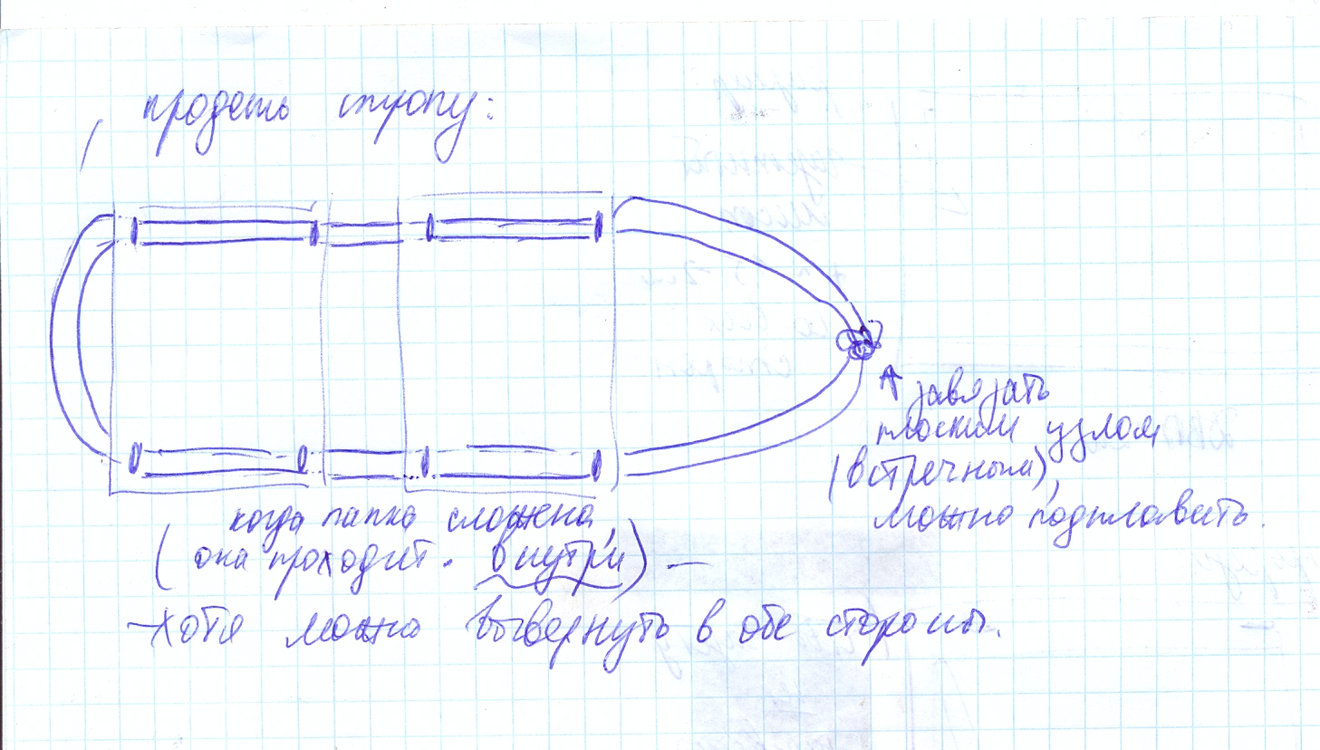 продеть стропу:
завязать
плоским узлом
(встречным),
можно подплавить.
когда папка сложена,
(она проходит внутри) —
— хотя можно вывернуть в обе стороны.